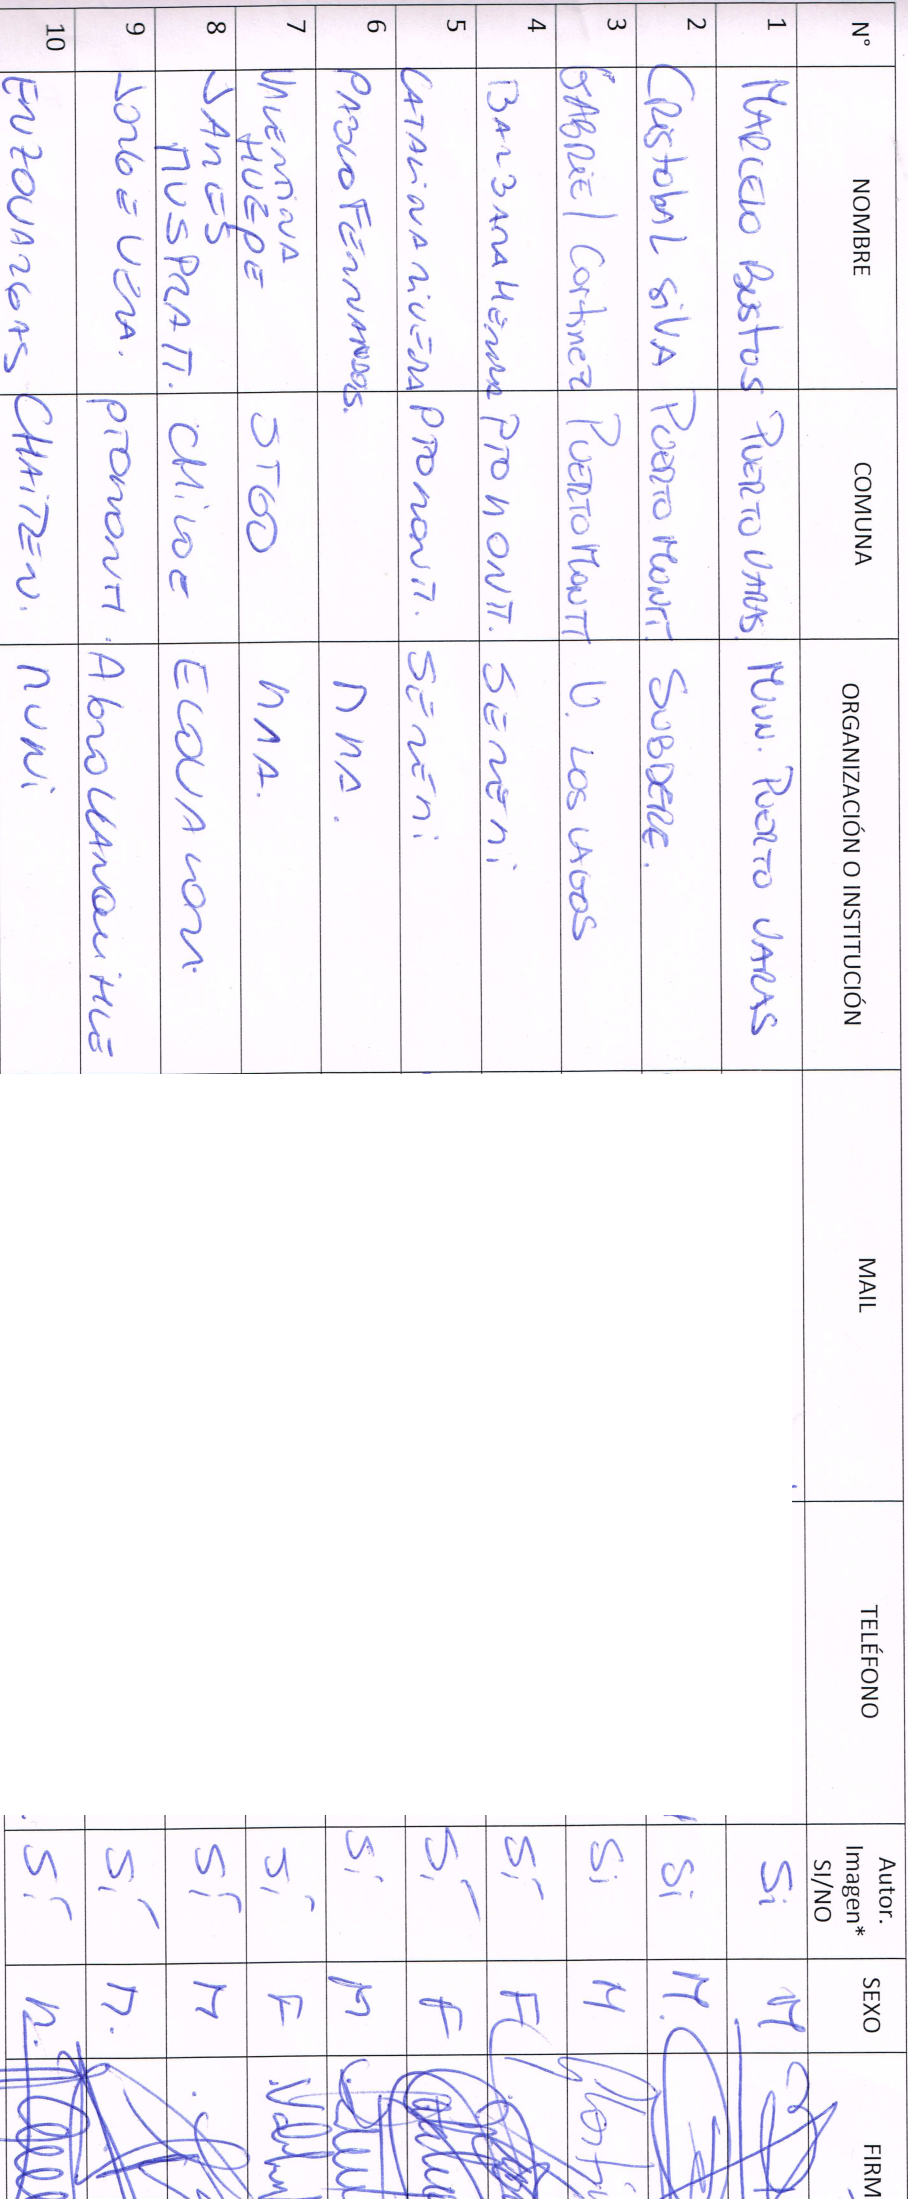 N° NOMBRE COMUNA ORGANIZACIÓN O INSTITUCIÓN MAIL TELÉFONO Autor. Imagen* SI/NO SEXO FIRM
1 MARCELO BUSTOS PUERTO VARAS. MUN. PUERTO VARAS Si M
2 CRISTOBAL SILVA PUERTO MONTT. SUBDERE. Si M.
3 GABRIEL Cortinez PUERTO MONTT U. LOS LAGOS Si M
4 BARBARA PTO MONTT. SEREMI Sí F
5 CATALINA RIVERA PTO MONTT. SEREMI Sí F
6 PABLO MMA. Sí M
7 VALENTINA HUEPE STGO MMA. Sí F
8 JAMES MUSPRATT. CHILOE Sí M
9 JORGE VERA. PTO MONTT. Sí M.
10 ENZO VARGAS CHAITEN. MUNI Sí M.